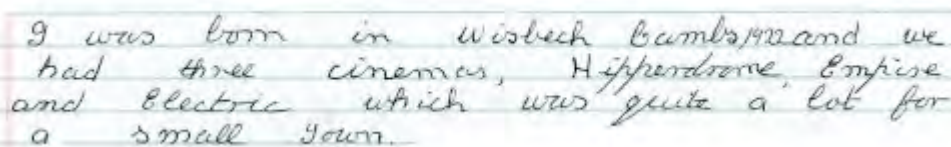 I was born in Wisbech Cambs, 1922 and we
had three cinemas, Hipperdrome, Empire
and Electric which was quite a lot for
a small Town.